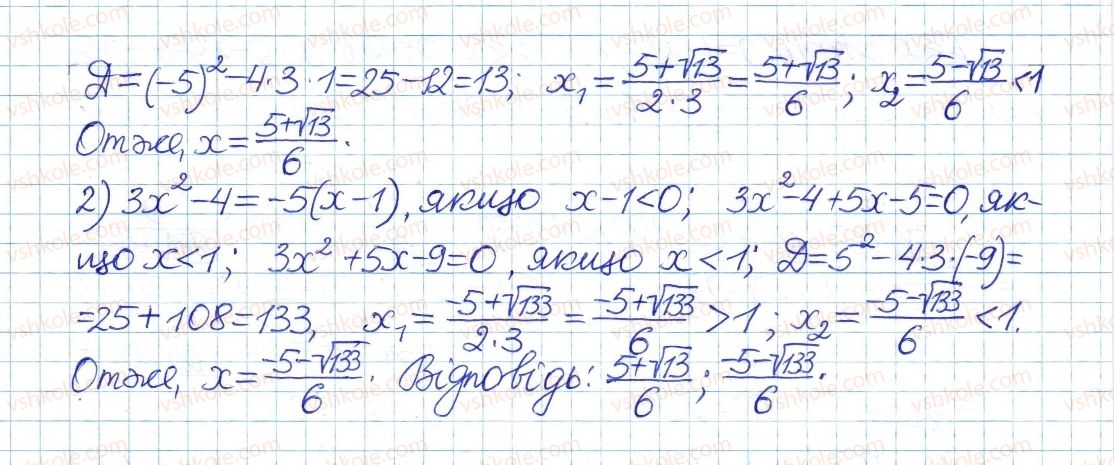 Д=(-5)²-4·3·1=25-12=13; x₁=(5+√13)/(2·3)=(5+√13)/6; x₂=(5-√13)/6<1
Отже, x=(5+√13)/6.
2) 3x²-4=-5(x-1), якщо x-1<0; 3x²-4+5x-5=0, як-
що x<1; 3x²+5x-9=0, якщо x<1; Д=5²-4·3·(-9)=
=25+108=133, x₁=(-5+√133)/(2·3)=(-5+√133)/6>1; x₂=(-5-√133)/6<1.
Отже, x=(-5-√133)/6. Відповідь: (5+√13)/6; (-5-√133)/6.